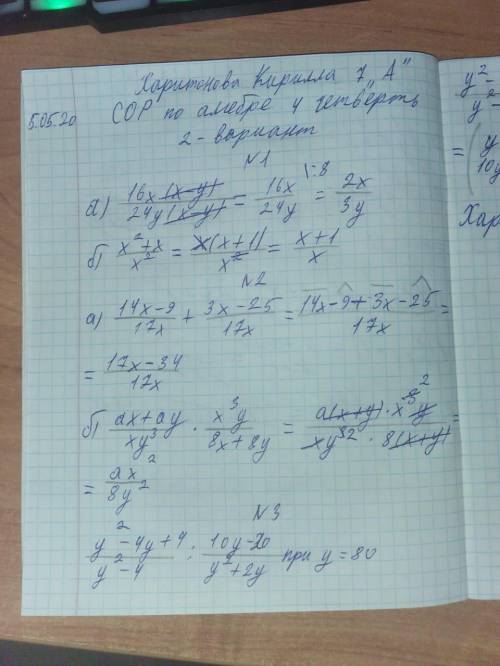 Харитонова Кирилла 7 „А"
5.05.20 СОР по алгебре 4 четверть
2-вариант
№1
а) 16x(x-y)/24y(x-y) = 16x/24y |:8 = 2x/3y
б) x²+x/x² = x(x+1)/x² = x+1/x
№2
а) 14x-9/17x + 3x-25/17x = 14x-9+3x-25/17x =
= 17x-34/17x
б) ax+ay/xy³ · x³y/8x+8y = a(x+y)·x³y/xy³·8(x+y) =
= ax²/8y²
№3
y²-4y+4/y²-4 : 10y-20/y²+2y при y=80
y²-
y²
= (y
10y
Хар